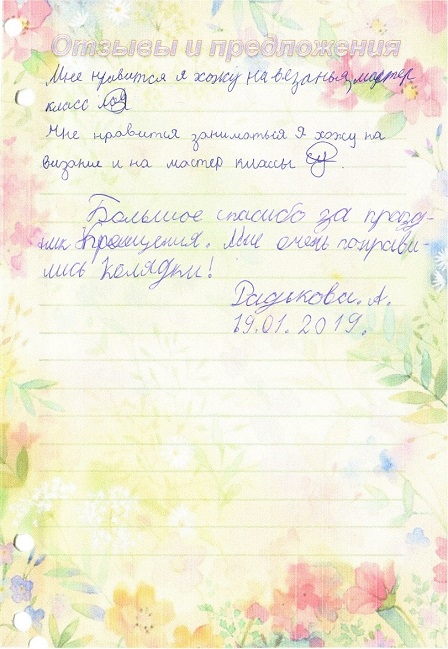 Отзывы и предложения
Мне нравится я хожу на везанья, мастер
класс
Мне нравится заниматься я хожу на
визание и на мастер класы
Большое спасибо за празд-
ник Крещения. Мне очень понрави-
лись Колядки!
Дадькова. А.
19.01.2019.